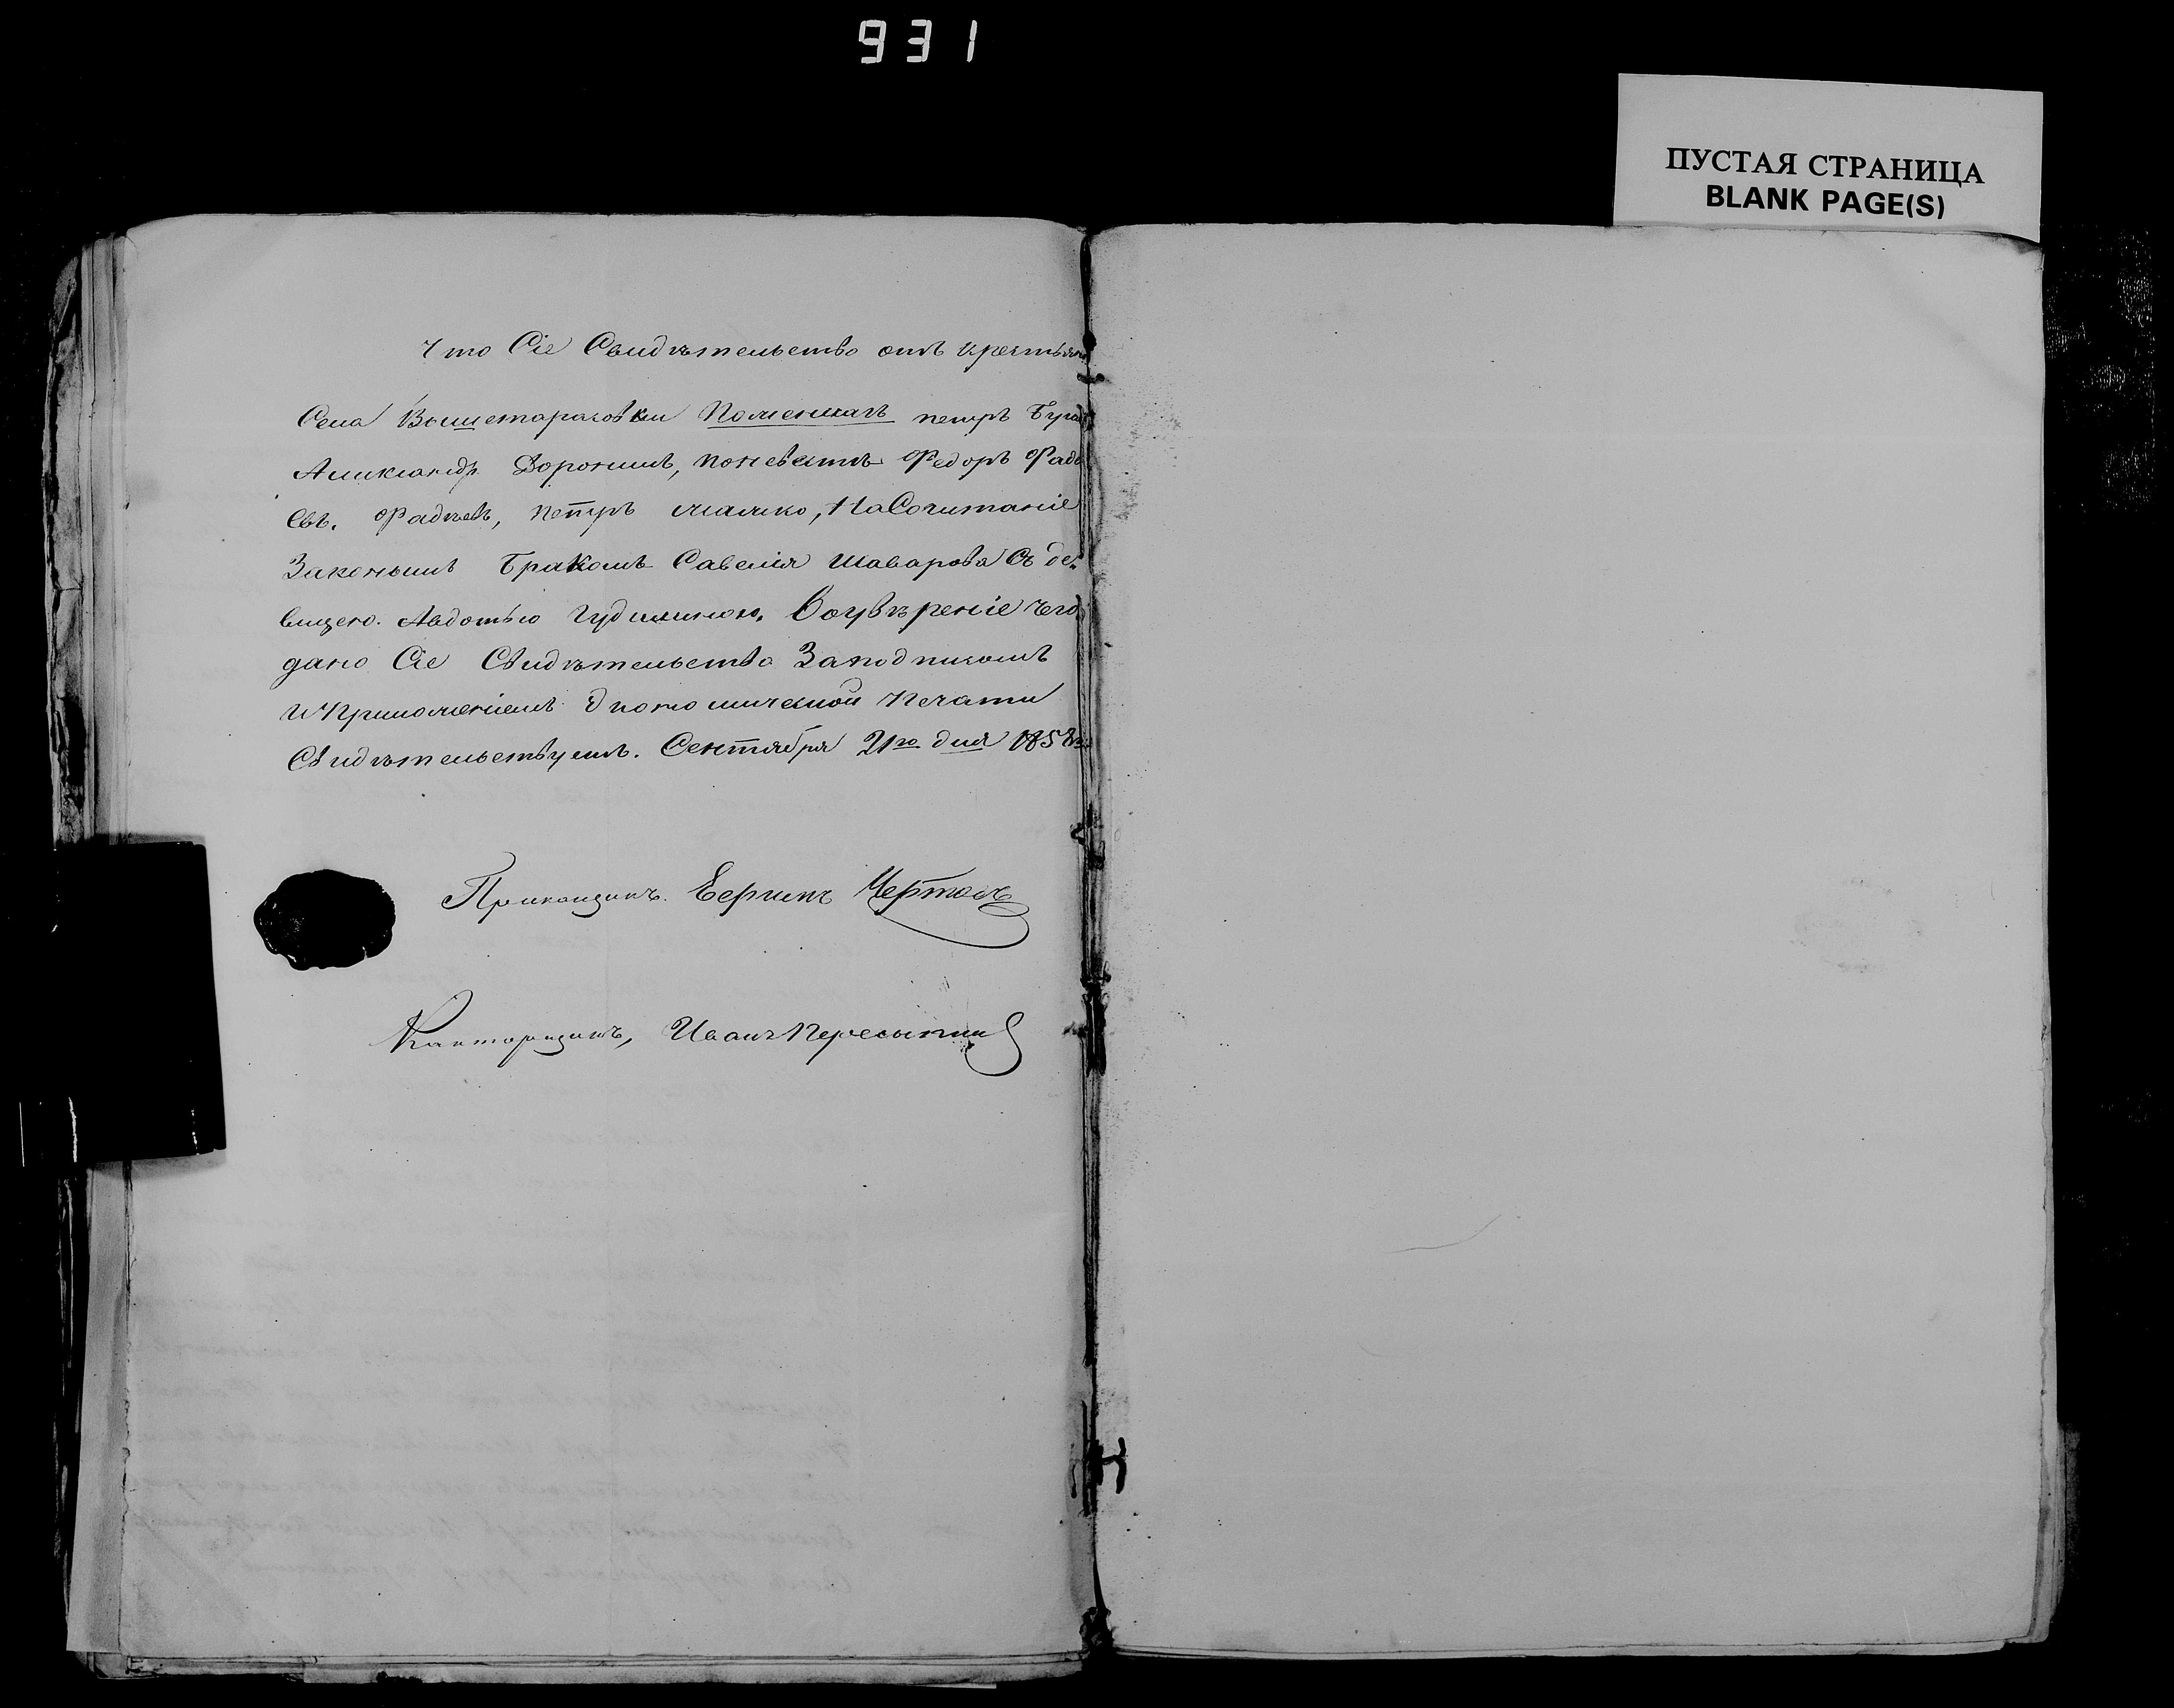 931
ПУСТАЯ СТРАНИЦА
BLANK PAGE(S)
Что Сіе Свидѣтельство отъ крестьян
Села Вышетарасовки Поженихѣ петръ
Аликсандръ Доронинъ, поневѣстѣ Федоръ Фадѣ
евъ. Фадѣевъ, петръ Малико, НаСочитаніе
Законымъ Бракомъ Савелія Шаварова Съ де
вицею. Авдотью Гудилиною. Воувѣреніе чего
дано Сіе Свидѣтельство Заподписомъ
ИПриложеніемъ Економической Печати
Свидѣтельствуемъ. Сентября 21го дня 1858
Прикащикъ. Чертовъ
Канторщикъ, Иванъ Пересыпкин